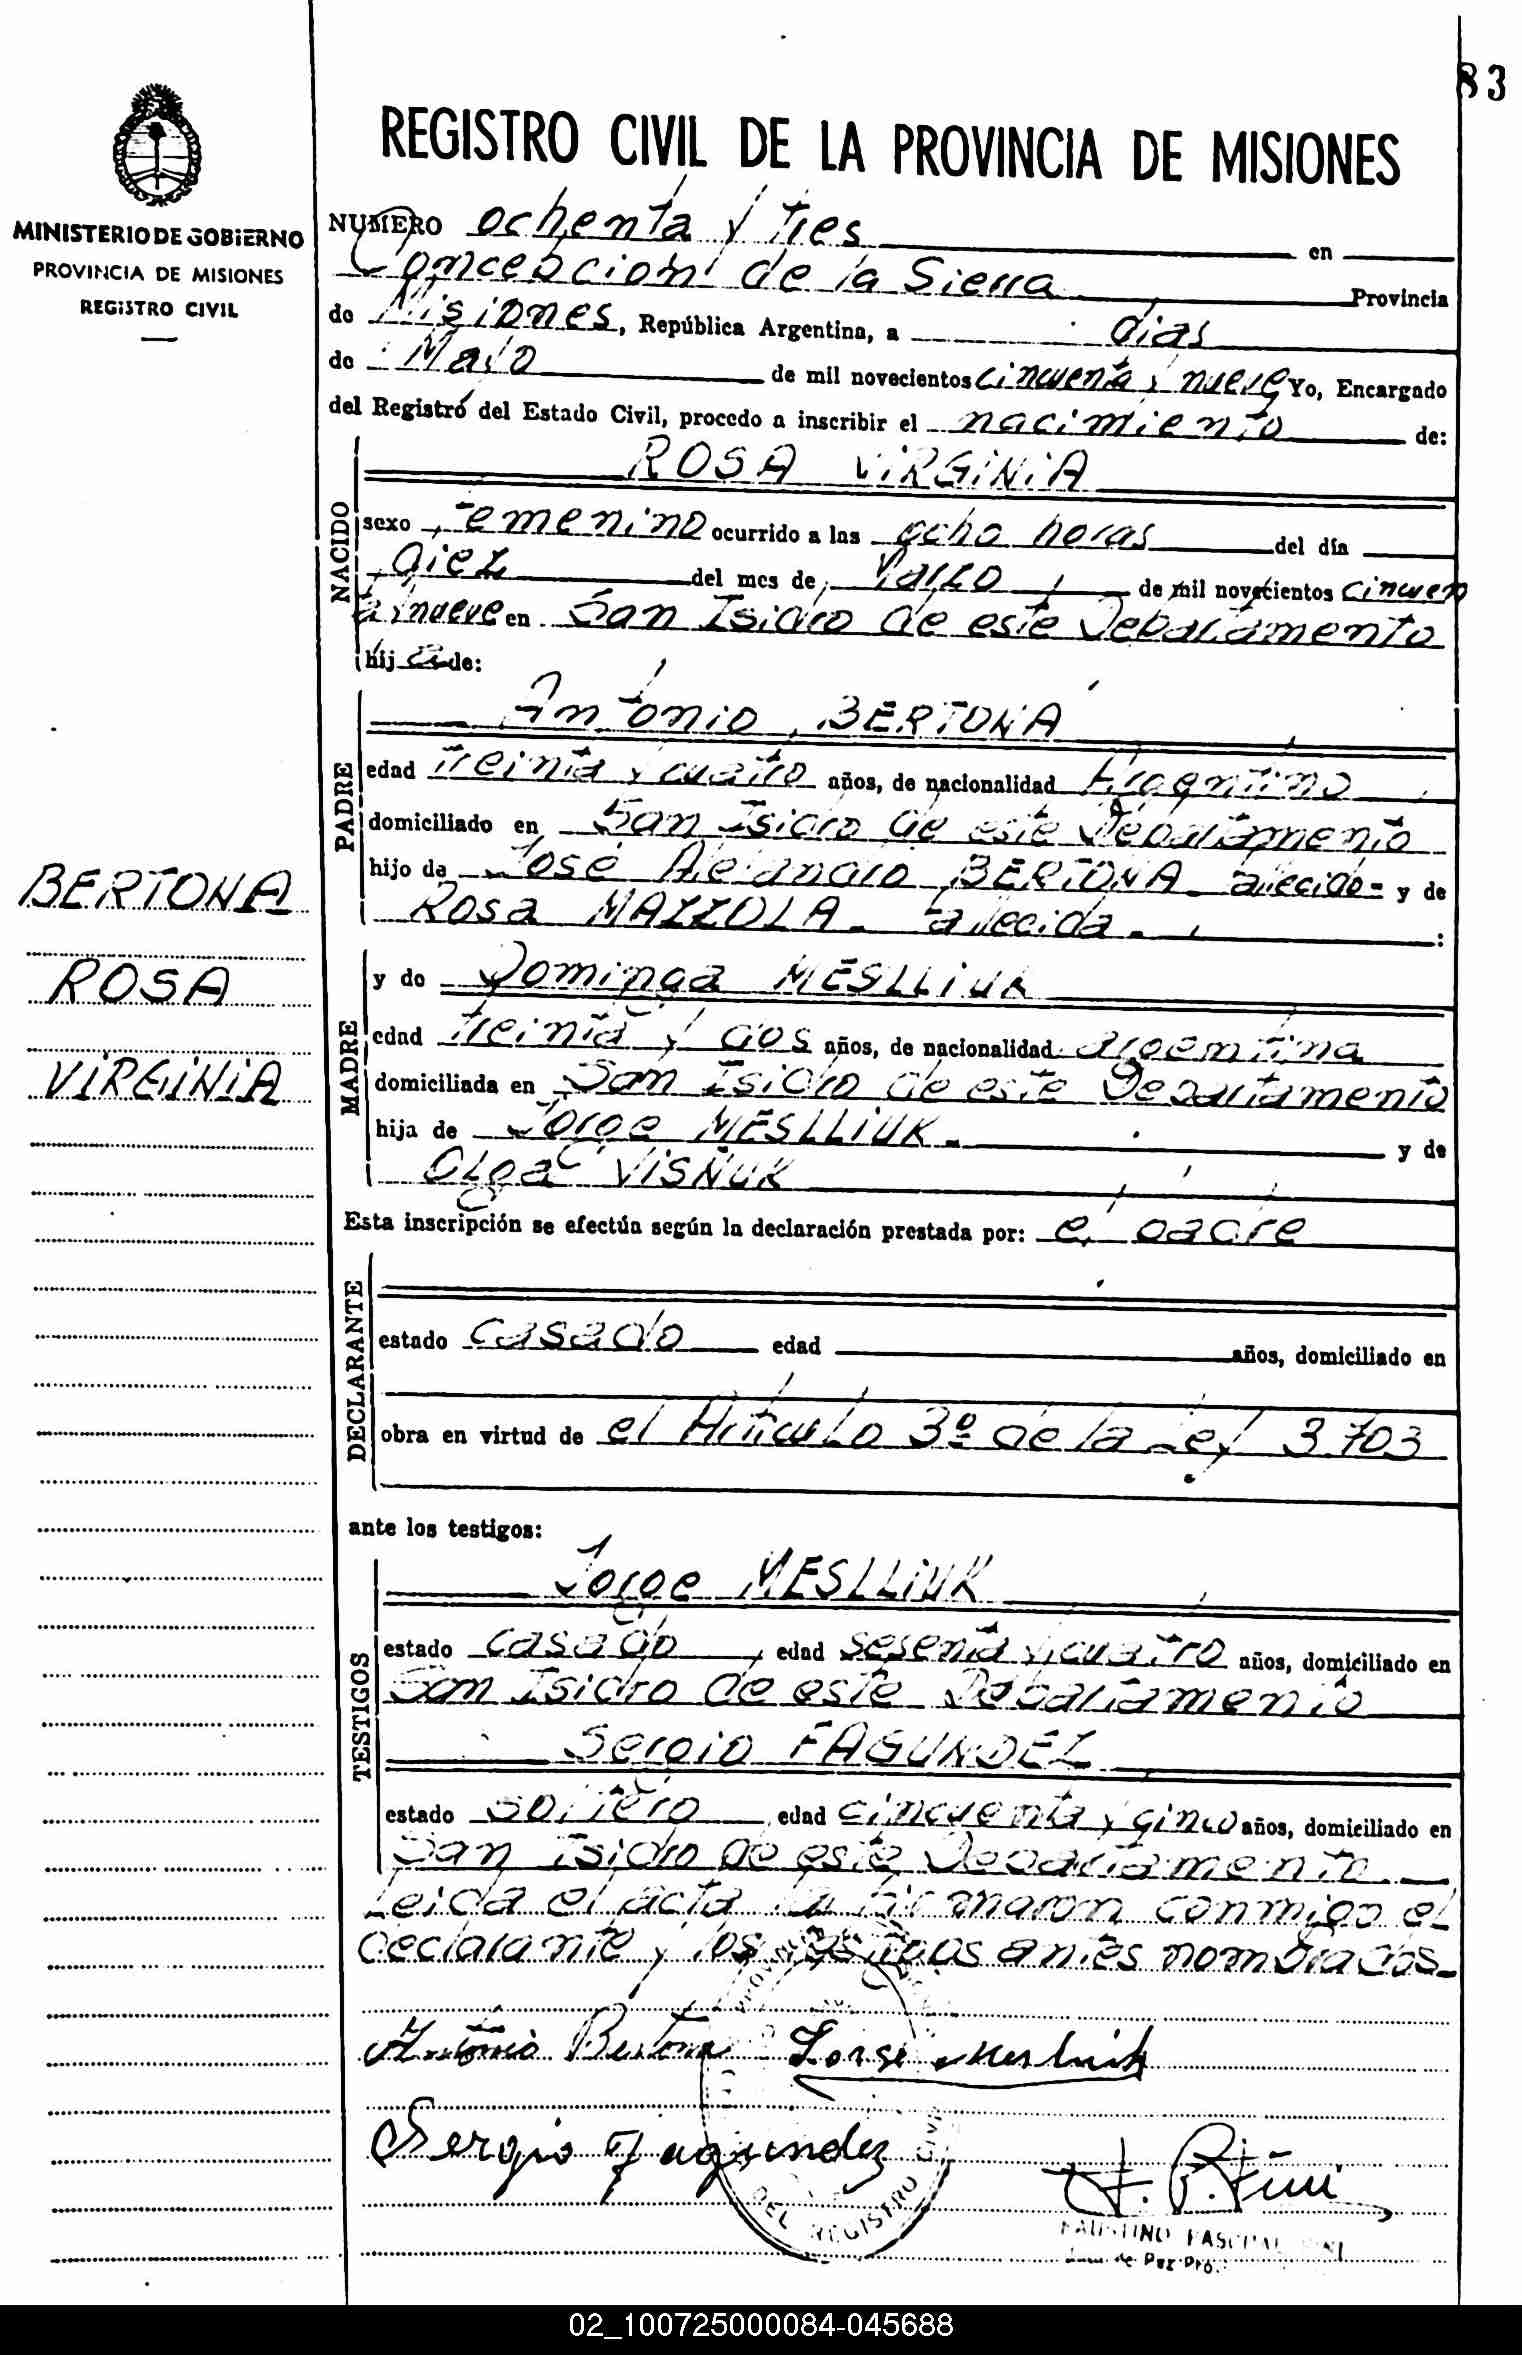 83
REGISTRO CIVIL DE LA PROVINCIA DE MISIONES
MINISTERIO DE GOBIERNO
PROVINCIA DE MISIONES
REGISTRO CIVIL
NUMERO ochenta y tres en
Concepcion de la Sierra Provincia
de Misiones, República Argentina, a dias
de Mayo de mil novecientos cincuenta y nueve Yo, Encargado
del Registro del Estado Civil, procedo a inscribir el nacimiento de:
NACIDO
ROSA VIRGINIA
sexo femenino ocurrido a las ocho horas del día
diez del mes de Marzo de mil novecientos cincuen
ta y nueve en San Isidro de este Departamento
hija de:
PADRE
Antonio BERTONA
edad treinta y cuatro años, de nacionalidad Argentino
domiciliado en San Isidro de este Departamento
hijo de José Alejandro BERTONA falecido= y de
Rosa MAZZOLA. fallecida. :
BERTONA
ROSA
VIRGINIA
MADRE
y de Dominga MESLLIUK
edad treinta y dos años, de nacionalidad argentina
domiciliada en San Isidro de este Departamento
hija de Jorge MESLLIUK. y de
Olga VISÑUK
Esta inscripción se efectúa según la declaración prestada por: el padre
DECLARANTE
estado casado edad años, domiciliado en
obra en virtud de el Artículo 3º de la Ley 3.703
ante los testigos:
TESTIGOS
Jorge MESLLIUK
estado casado, edad sesenta y cuatro años, domiciliado en
San Isidro de este Departamento
Sergio FAGUNDEZ
estado soltero edad cincuenta y cinco años, domiciliado en
San Isidro de este Departamento.
Leida el acta la firmaron conmigo el
declarante y los testigos antes nombrados.
Antonio Bertona Jorge Mesliuk
Sergio Fagundez
DEL REGISTRO CIVIL
FAUSTINO PASCUAL
de Paz
02_100725000084-045688